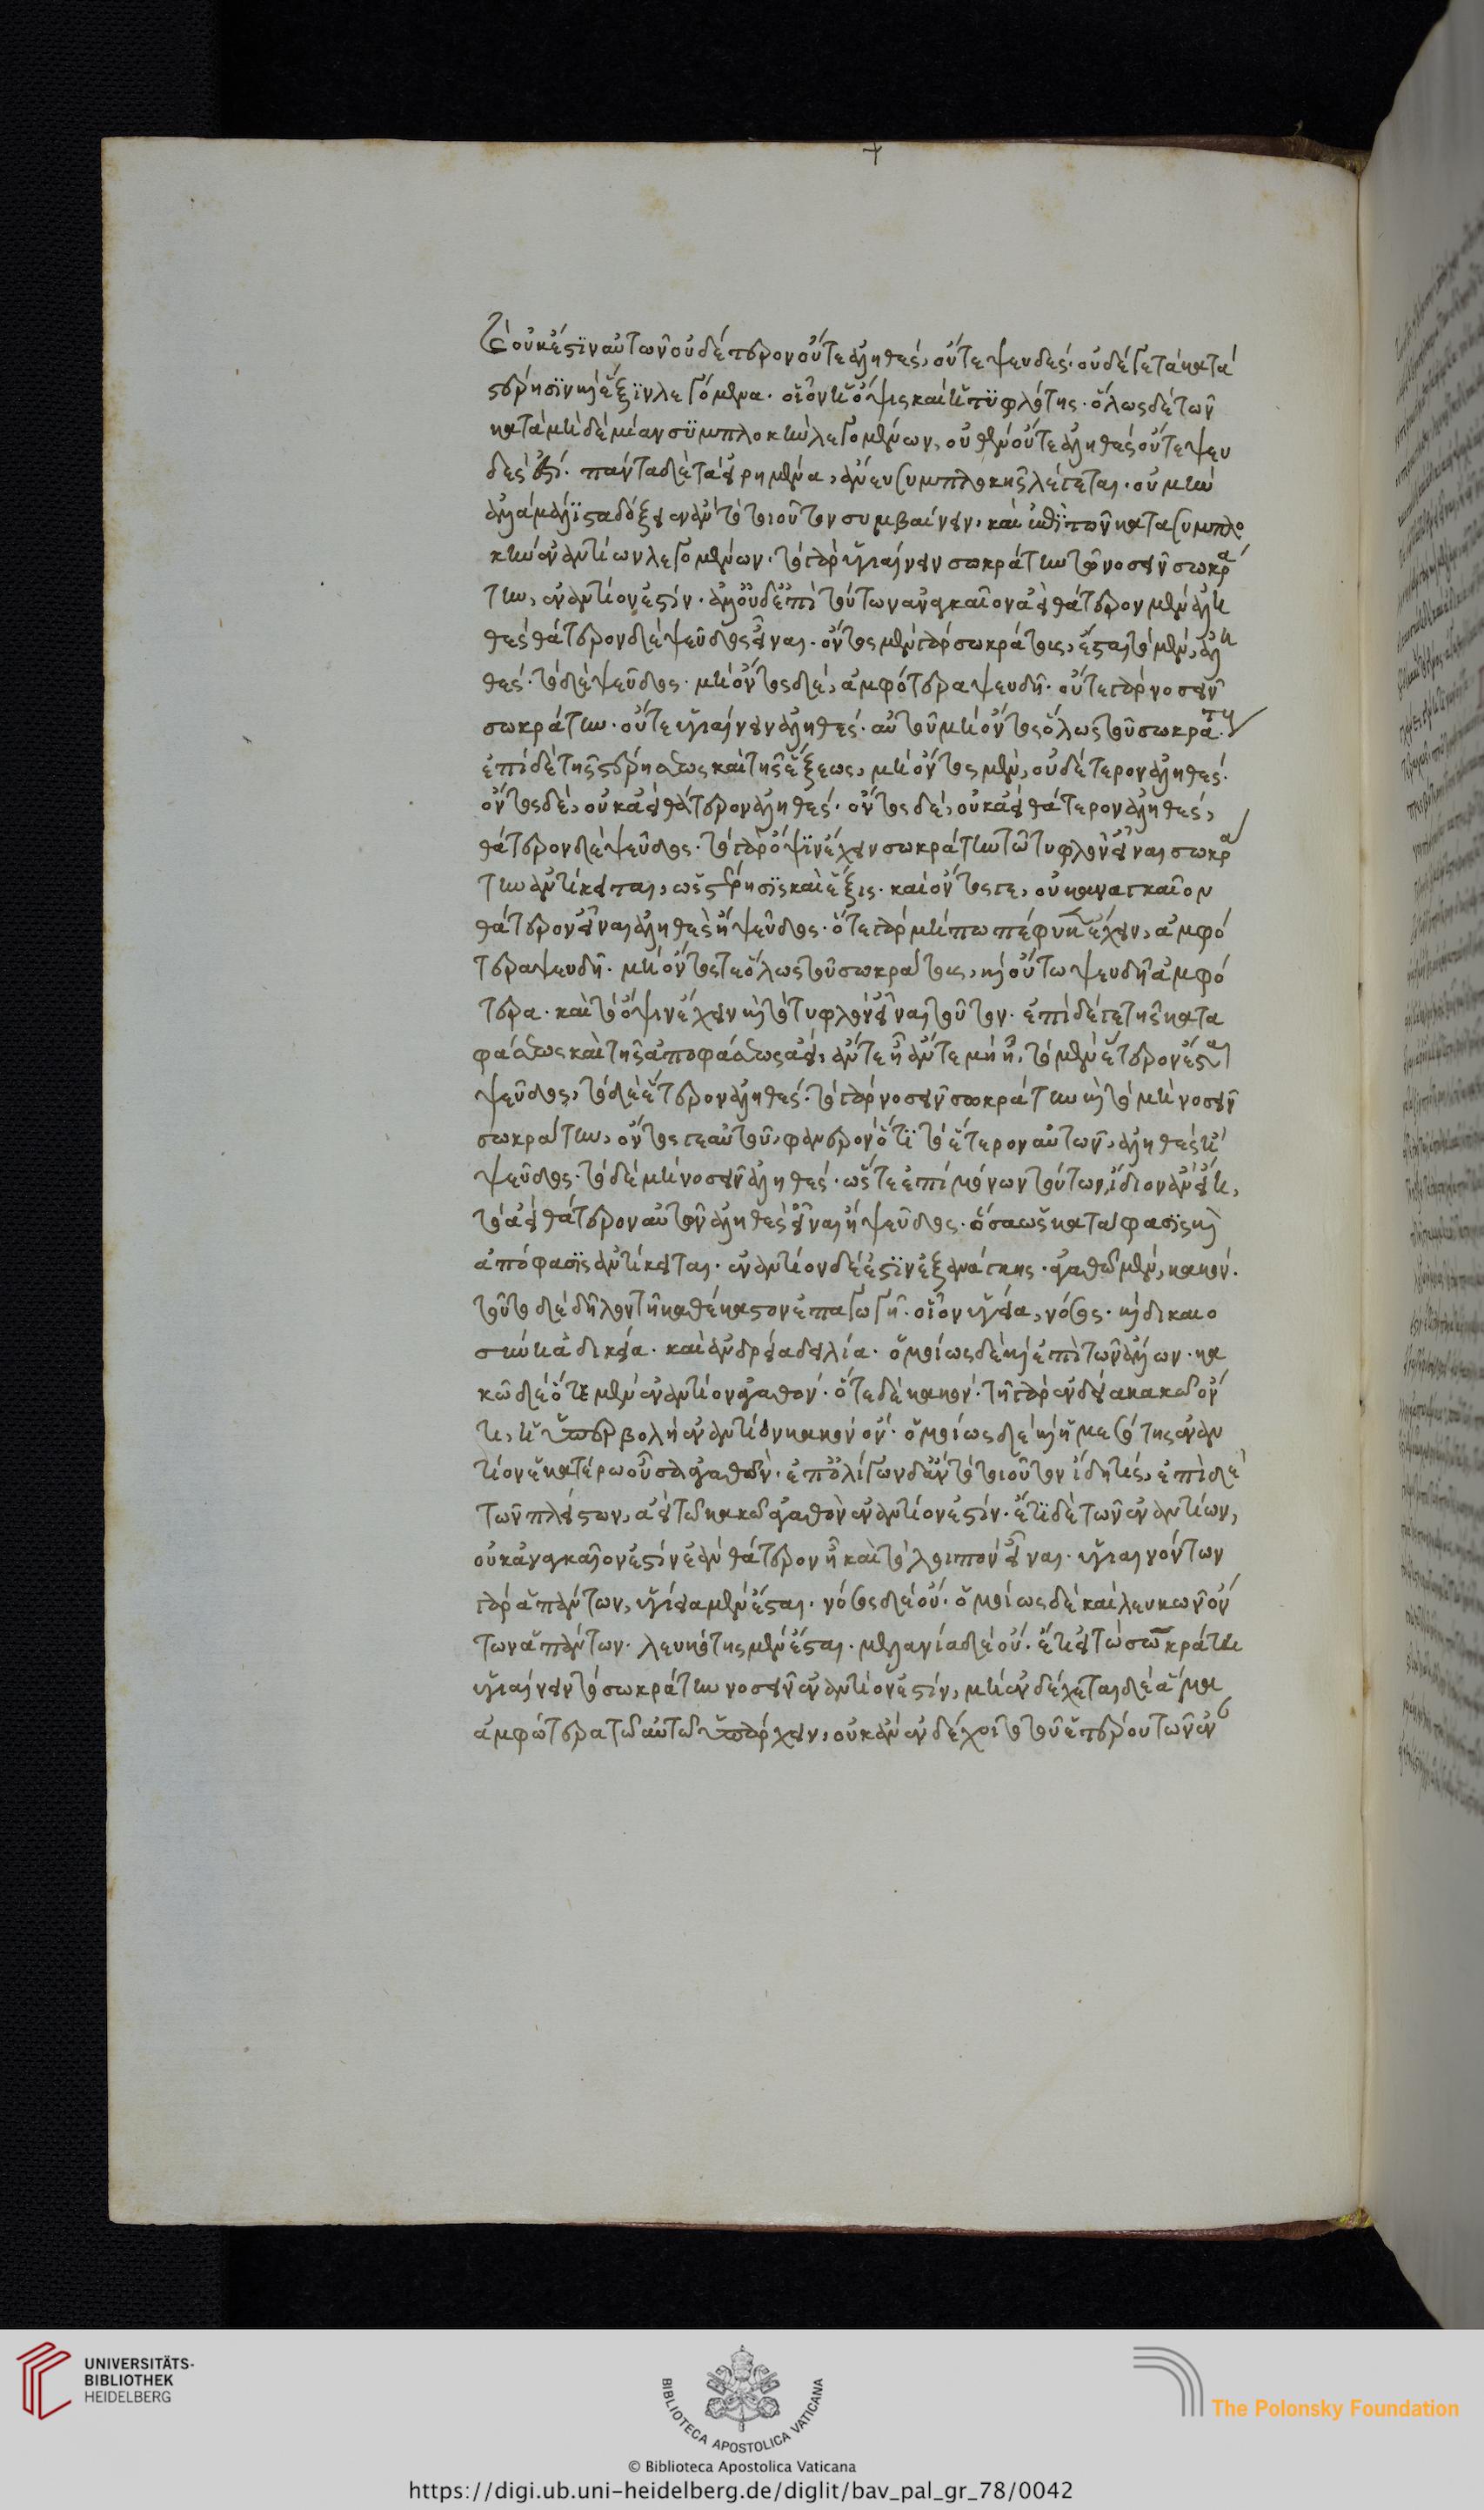 τὸ οὐκ ἔστιν αὐτῶν οὐδέτερον οὔτε ἀληθές, οὔτε ψευδές. οὐδέ γε τὰ κατὰ
στέρησιν καὶ ἕξιν λεγόμενα. οἷον ἡ ὄψις καὶ ἡ τυφλότης. ὅλως δὲ τῶν
κατὰ μηδεμίαν συμπλοκὴν λεγομένων, οὐθὲν οὔτε ἀληθὲς οὔτε ψευ
δές ἐστι. πάντα δὲ τὰ εἰρημένα, ἄνευ συμπλοκῆς λέγεται. οὐ μὴν
ἀλλὰ μάλιστα δόξει ἂν τὸ τοιοῦτον συμβαίνειν, καὶ ἐπὶ τῶν κατὰ συμπλο
κὴν ἐναντίων λεγομένων. τὸ γὰρ ὑγιαίνειν σωκράτην τῶ νοσεῖν σωκρά
την, ἐναντίον ἐστίν. ἀλλ' οὐδ' ἐπὶ τούτων ἀναγκαῖον ἀεὶ θάτερον μὲν ἀλη
θὲς θάτερον δὲ ψεῦδος εἶναι. ὄντος μὲν γὰρ σωκράτους, ἔσται τὸ μὲν, ἀλη
θές. τὸ δὲ ψεῦδος. μὴ ὄντος δὲ, ἀμφότερα ψευδῆ. οὔτε γὰρ νοσεῖν
σωκράτην. οὔτε ὑγιαίνειν ἀληθές. αὐτοῦ μὴ ὄντος ὅλως τοῦ σωκράτη.
ἐπὶ δὲ τῆς στερήσεως καὶ τῆς ἕξεως, μὴ ὄντος μὲν, οὐδέτερον ἀληθές.
ὄντος δὲ, οὐκ ἀεὶ θάτερον ἀληθές. ὄντος δὲ, οὐκ ἀεὶ θάτερον ἀληθές,
θάτερον δὲ ψεῦδος. τὸ γὰρ ὄψιν ἔχειν σωκράτην τῶ τυφλὸν εἶναι σωκρά
την ἀντίκειται, ὡς στέρησις καὶ ἕξις. καὶ ὄντος γε, οὐκ ἀναγκαῖον
θάτερον εἶναι ἀληθὲς ἢ ψεῦδος. ὅτε γὰρ μήπω πέφυκεν ἔχειν, ἀμφό
τερα ψευδῆ. μὴ ὄντος τε ὅλως τοῦ σωκράτους, καὶ οὕτω ψευδῆ ἀμφό
τερα. καὶ τὸ ὄψιν ἔχειν καὶ τὸ τυφλὸν εἶναι τοῦτον. ἐπὶ δέ γε τῆς κατα
φάσεως καὶ τῆς ἀποφάσεως ἀεί, ἄν τε ἦ ἄν τε μὴ ἦ, τὸ μὲν ἕτερον ἔσται
ψεῦδος, τὸ δὲ ἕτερον ἀληθές. τὸ γὰρ νοσεῖν σωκράτην καὶ τὸ μὴ νοσεῖν
σωκράτην, ὄντος τε αὐτοῦ, φανερὸν ὅτι τὸ ἕτερον αὐτῶν, ἀληθὲς ἢ
ψεῦδος. τὸ δὲ μὴ νοσεῖν ἀληθές. ὥστε ἐπὶ μόνων τούτων, ἴδιον ἂν εἴη,
τὸ ἀεὶ θάτερον αὐτῶν ἀληθὲς εἶναι ἢ ψεῦδος. ὅσα ὡς κατάφασις καὶ
ἀπόφασις ἀντίκειται. ἐναντίον δέ ἐστιν ἐξ ἀνάγκης. ἀγαθῶ μὲν, κακόν.
τοῦτο δὲ δῆλον τῆ καθέκαστον ἐπαγωγῆ. οἷον ὑγεία, νόσος. καὶ δικαιο
σύνη ἀδικεία. καὶ ἀνδρεία δειλία. ὁμοίως δὲ καὶ ἐπὶ τῶν ἄλλων. κα
κῶ δὲ ὁτὲ μὲν ἐναντίον ἀγαθόν. ὁτὲ δὲ κακόν. τῆ γὰρ ἐνδεία κακῶ ὄν
τι, ἡ ὑπερβολὴ ἐναντίον κακὸν ὄν. ὁμοίως δὲ καὶ ἡ μεσότης ἐναν
τίον ἑκατέρω οὖσα ἀγαθόν. ἐπ' ὀλίγων δ' ἂν τὸ τοιοῦτον ἴδη τις, ἐπὶ δὲ
τῶν πλείστων, ἀεὶ τῶ κακῶ ἀγαθὸν ἐναντίον ἐστίν. ἔτι δὲ τῶν ἐναντίων,
οὐκ ἀναγκαῖόν ἐστιν ἐὰν θάτερον ἦ καὶ τὸ λοιπὸν εἶναι. ὑγιαινόντων
γὰρ ἁπάντων, ὑγίεια μὲν ἔσται. νόσος δὲ οὔ. ὁμοίως δὲ καὶ λευκῶν ὄν
των ἁπάντων. λευκότης μὲν ἔσται. μελανία δὲ οὔ. ἔτι εἰ τὸ σωκράτη
ὑγιαίνειν τὸ σωκράτην νοσεῖν ἐναντίον ἐστίν, μὴ ἐνδέχεται δὲ ἅμα
ἀμφότερα τῶ αὐτῶ ὑπάρχειν, οὐκ ἂν ἐνδέχοιτο τοῦ ἑτέρου τῶν ἐν
UNIVERSITÄTS-
BIBLIOTHEK
HEIDELBERG
BIBLIOTECA APOSTOLICA VATICANA
The Polonsky Foundation
© Biblioteca Apostolica Vaticana
https://digi.ub.uni-heidelberg.de/diglit/bav_pal_gr_78/0042